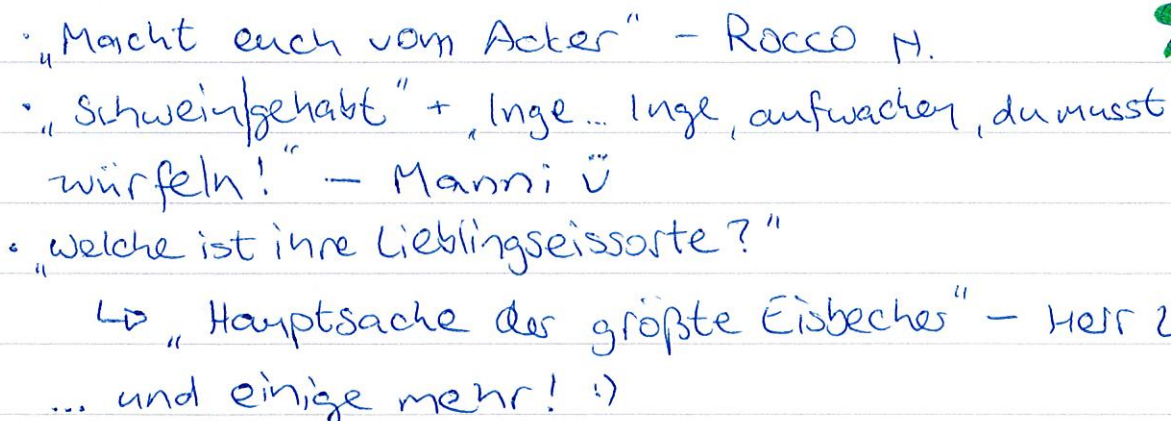 · „Macht euch vom Acker“ – Rocco N.
· „Schwein gehabt“ + „Inge... Inge, aufwachen, du musst
würfeln!“ – Manni Ü
· „Welche ist ihre Lieblingseissorte?“
↳ „Hauptsache der größte Eisbecher“ – Herr
... und einige mehr! :)